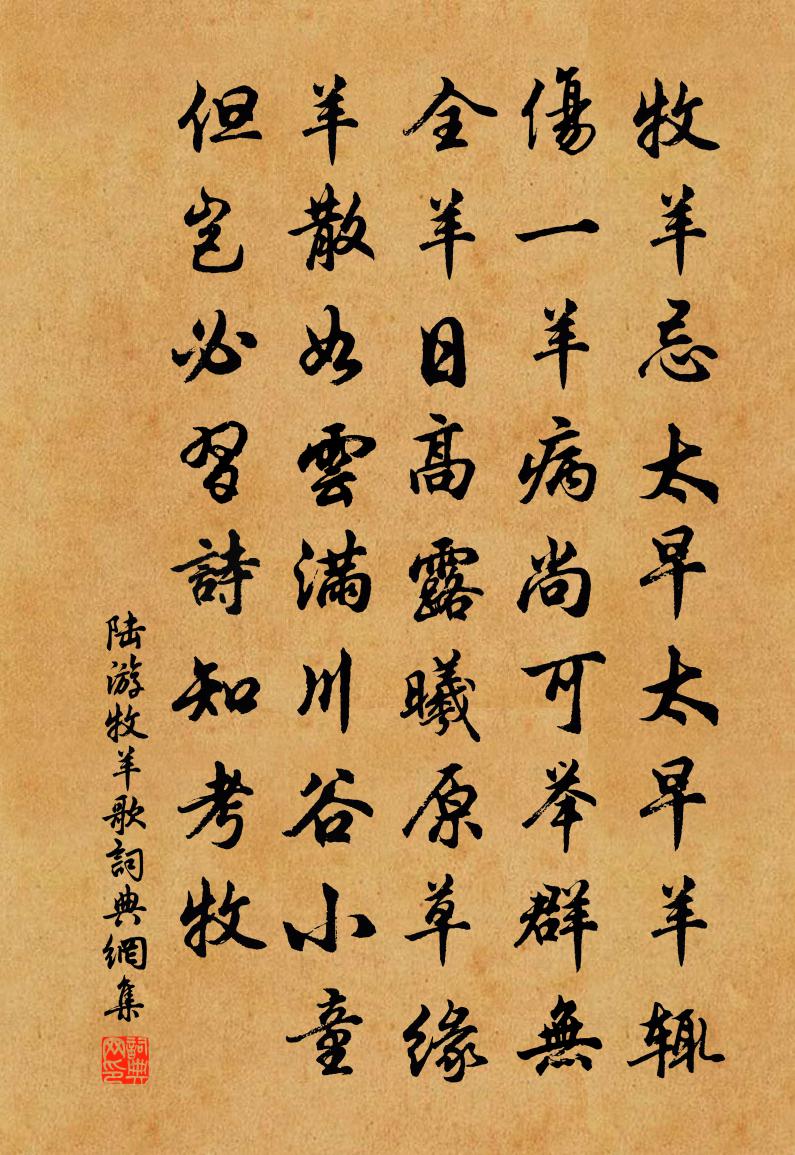 牧羊忌太早太早羊辄
傷一羊病尚可举群無
全羊日高露曦原草緣
羊散如雲滿川谷小童
但岂必習詩知考牧
陆游牧羊歌詞典網集
詞典网印